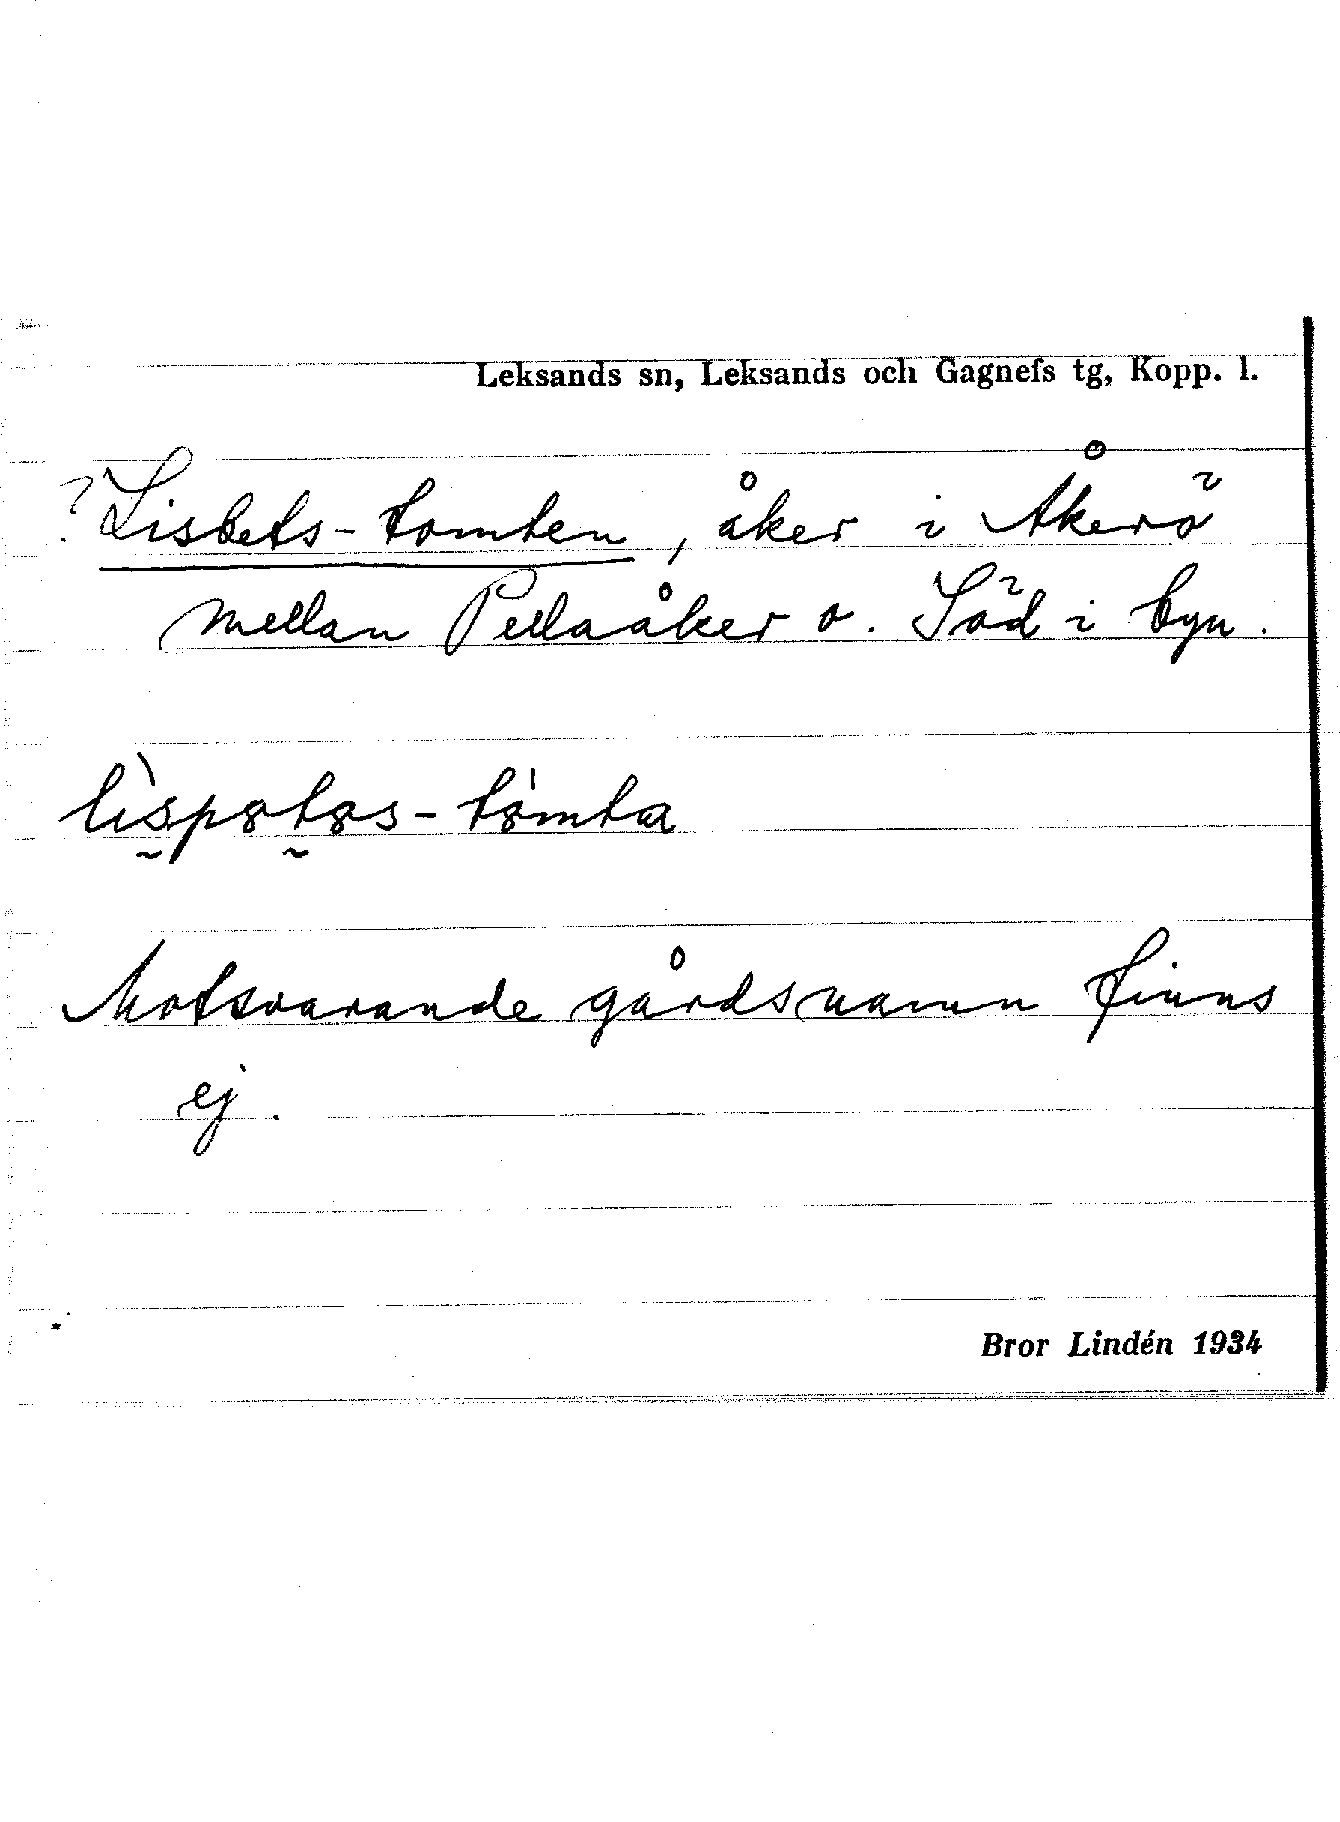 Leksands sn, Leksands och Gagnefs tg, Kopp. l.
? Lisbets-tomten, åker i Åkerö
mellan Pellaåker o. Söd i byn.
Motsvarande gårdsnamn finns
ej.
Bror Lindén 1934